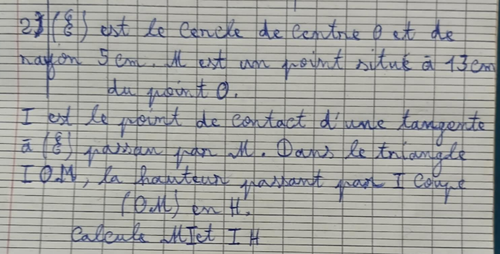 2) (C) est le cercle de centre O et de
rayon 5 cm. M est un point situé à 13 cm
du point O.
I est le point de contact d'une tangente
à (C) passan par M. Dans le triangle
IOM, la hauteur passant par I coupe
(OM) en H.
Calcule MI et IH